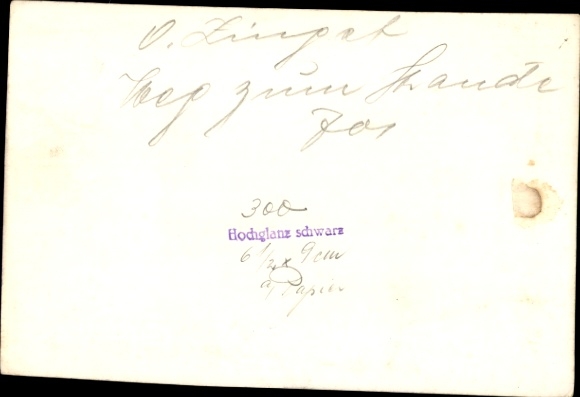 O. Zingst
Weg zum Strande
300
Hochglanz schwarz
6 1/2 x 9 cm
Papier